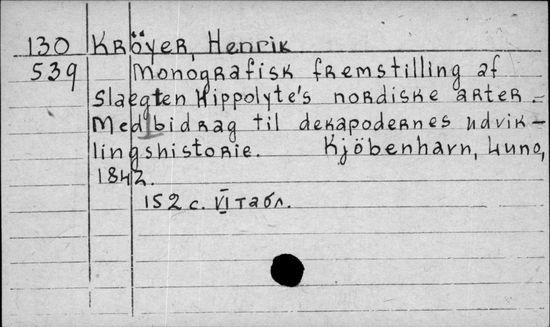 130 Kröyer, Henrik
539 Monografisk fremstilling af
Slaegten Hippolyte's nordiske arter.-
Med bidrag til dekapodernes udvik-
lingshistorie. Kjöbenhavn, Luno,
1842.
152 с. VI табл.